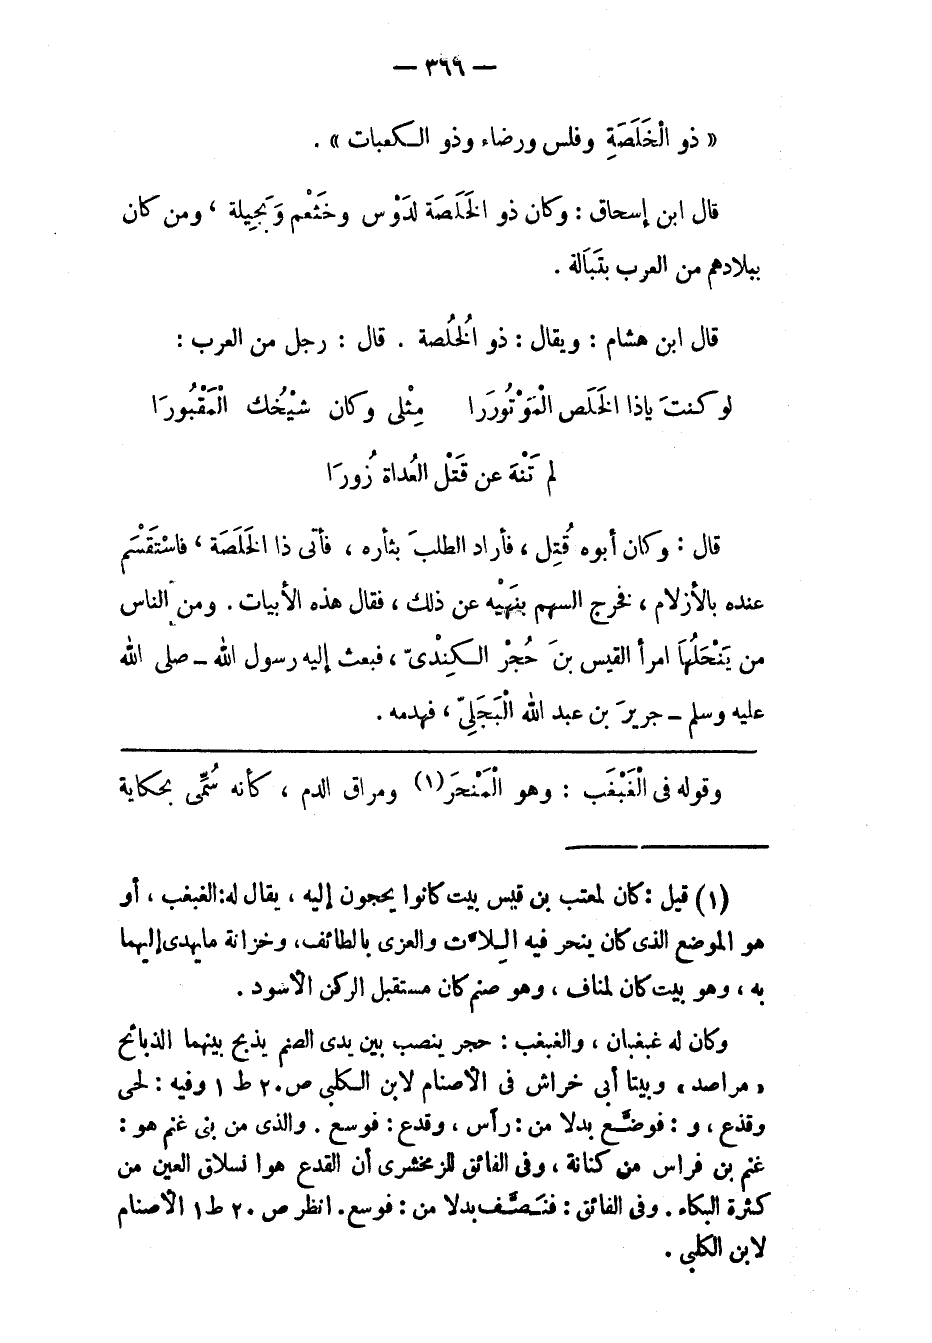 — ٣٦٩ —
« ذو الْخَلَصَةِ وفلس ورضاء وذو الكعبات » .
قال ابن إسحاق : وكان ذو الخَلَصَة لدَوْس وخَثْعم وَبَجِيلة ، ومن كان
ببلادهم من العرب بتَبَالة .
قال ابن هشام : ويقال : ذو الخُلُصة . قال : رجل من العرب :
لو كنتَ ياذا الخَلَص الْمَوْتُورَرا مِثْلى وكان شيْخُك الْمَقْبُورَا
لم تَنْهَ عن قَتْل العُداة زُورَا
قال : وكان أبوه قُتِل ، فأراد الطلبَ بثأره ، فأتى ذا الخَلَصَة ، فاسْتَقْسَم
عنده بالأزلام ، فخرج السهم بنَهْيْه عن ذلك ، فقال هذه الأبيات . ومن الناس
من يَنْحَلُهَا امرأ القيس بنَ حُجْر الكِنْدىّ ، فبعث إليه رسول الله – صلى الله
عليه وسلم – جريرَ بن عبد الله الْبَجَلِيّ ، فهدمه .
وقوله فى الْغَبْغَب : وهو الْمَنْحَر(١) ومراق الدم ، كأنه سُمِّى بحكاية
(١) قيل : كان لمعتب بن قيس بيت كانوا يحجون إليه ، يقال له: الغبغب ، أو
هو الموضع الذى كان ينحر فيه اللات والعزى بالطائف، وخزانة مايهدى إليهما
به ، وهو بيت كان لمناف ، وهو صنم كان مستقبل الركن الأسود .
وكان له غبغبان ، والغبغب : حجر ينصب بين يدى الصنم يذبح بينهما الذبائح
« مراصد » وبيتا أبى خراش فى الأصنام لابن الكلبى ص ٢٠ ط ١ وفيه : لحى
وقذع ، و : فوضَّع بدلا من : رأس ، وقدع : فوسع . والذى من بنى غنم هو :
غنم بن فراس من كنانة ، وفى الفائق للزمخشرى أن القدع هوا نسلاق العين من
كثرة البكاء . وفى الفائق : فنصَّف بدلا من : فوسع. انظر ص ٢٠ ط ١ الأصنام
لابن الكلبى .